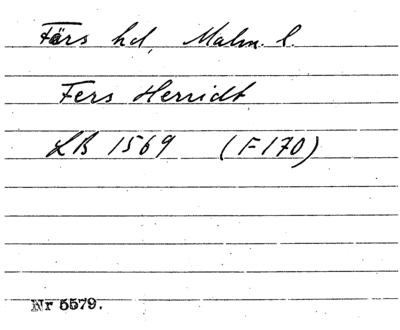 Färs hd, Malm. l.
Fers Herridt
LB 1569 (F170)
Nr 5579.